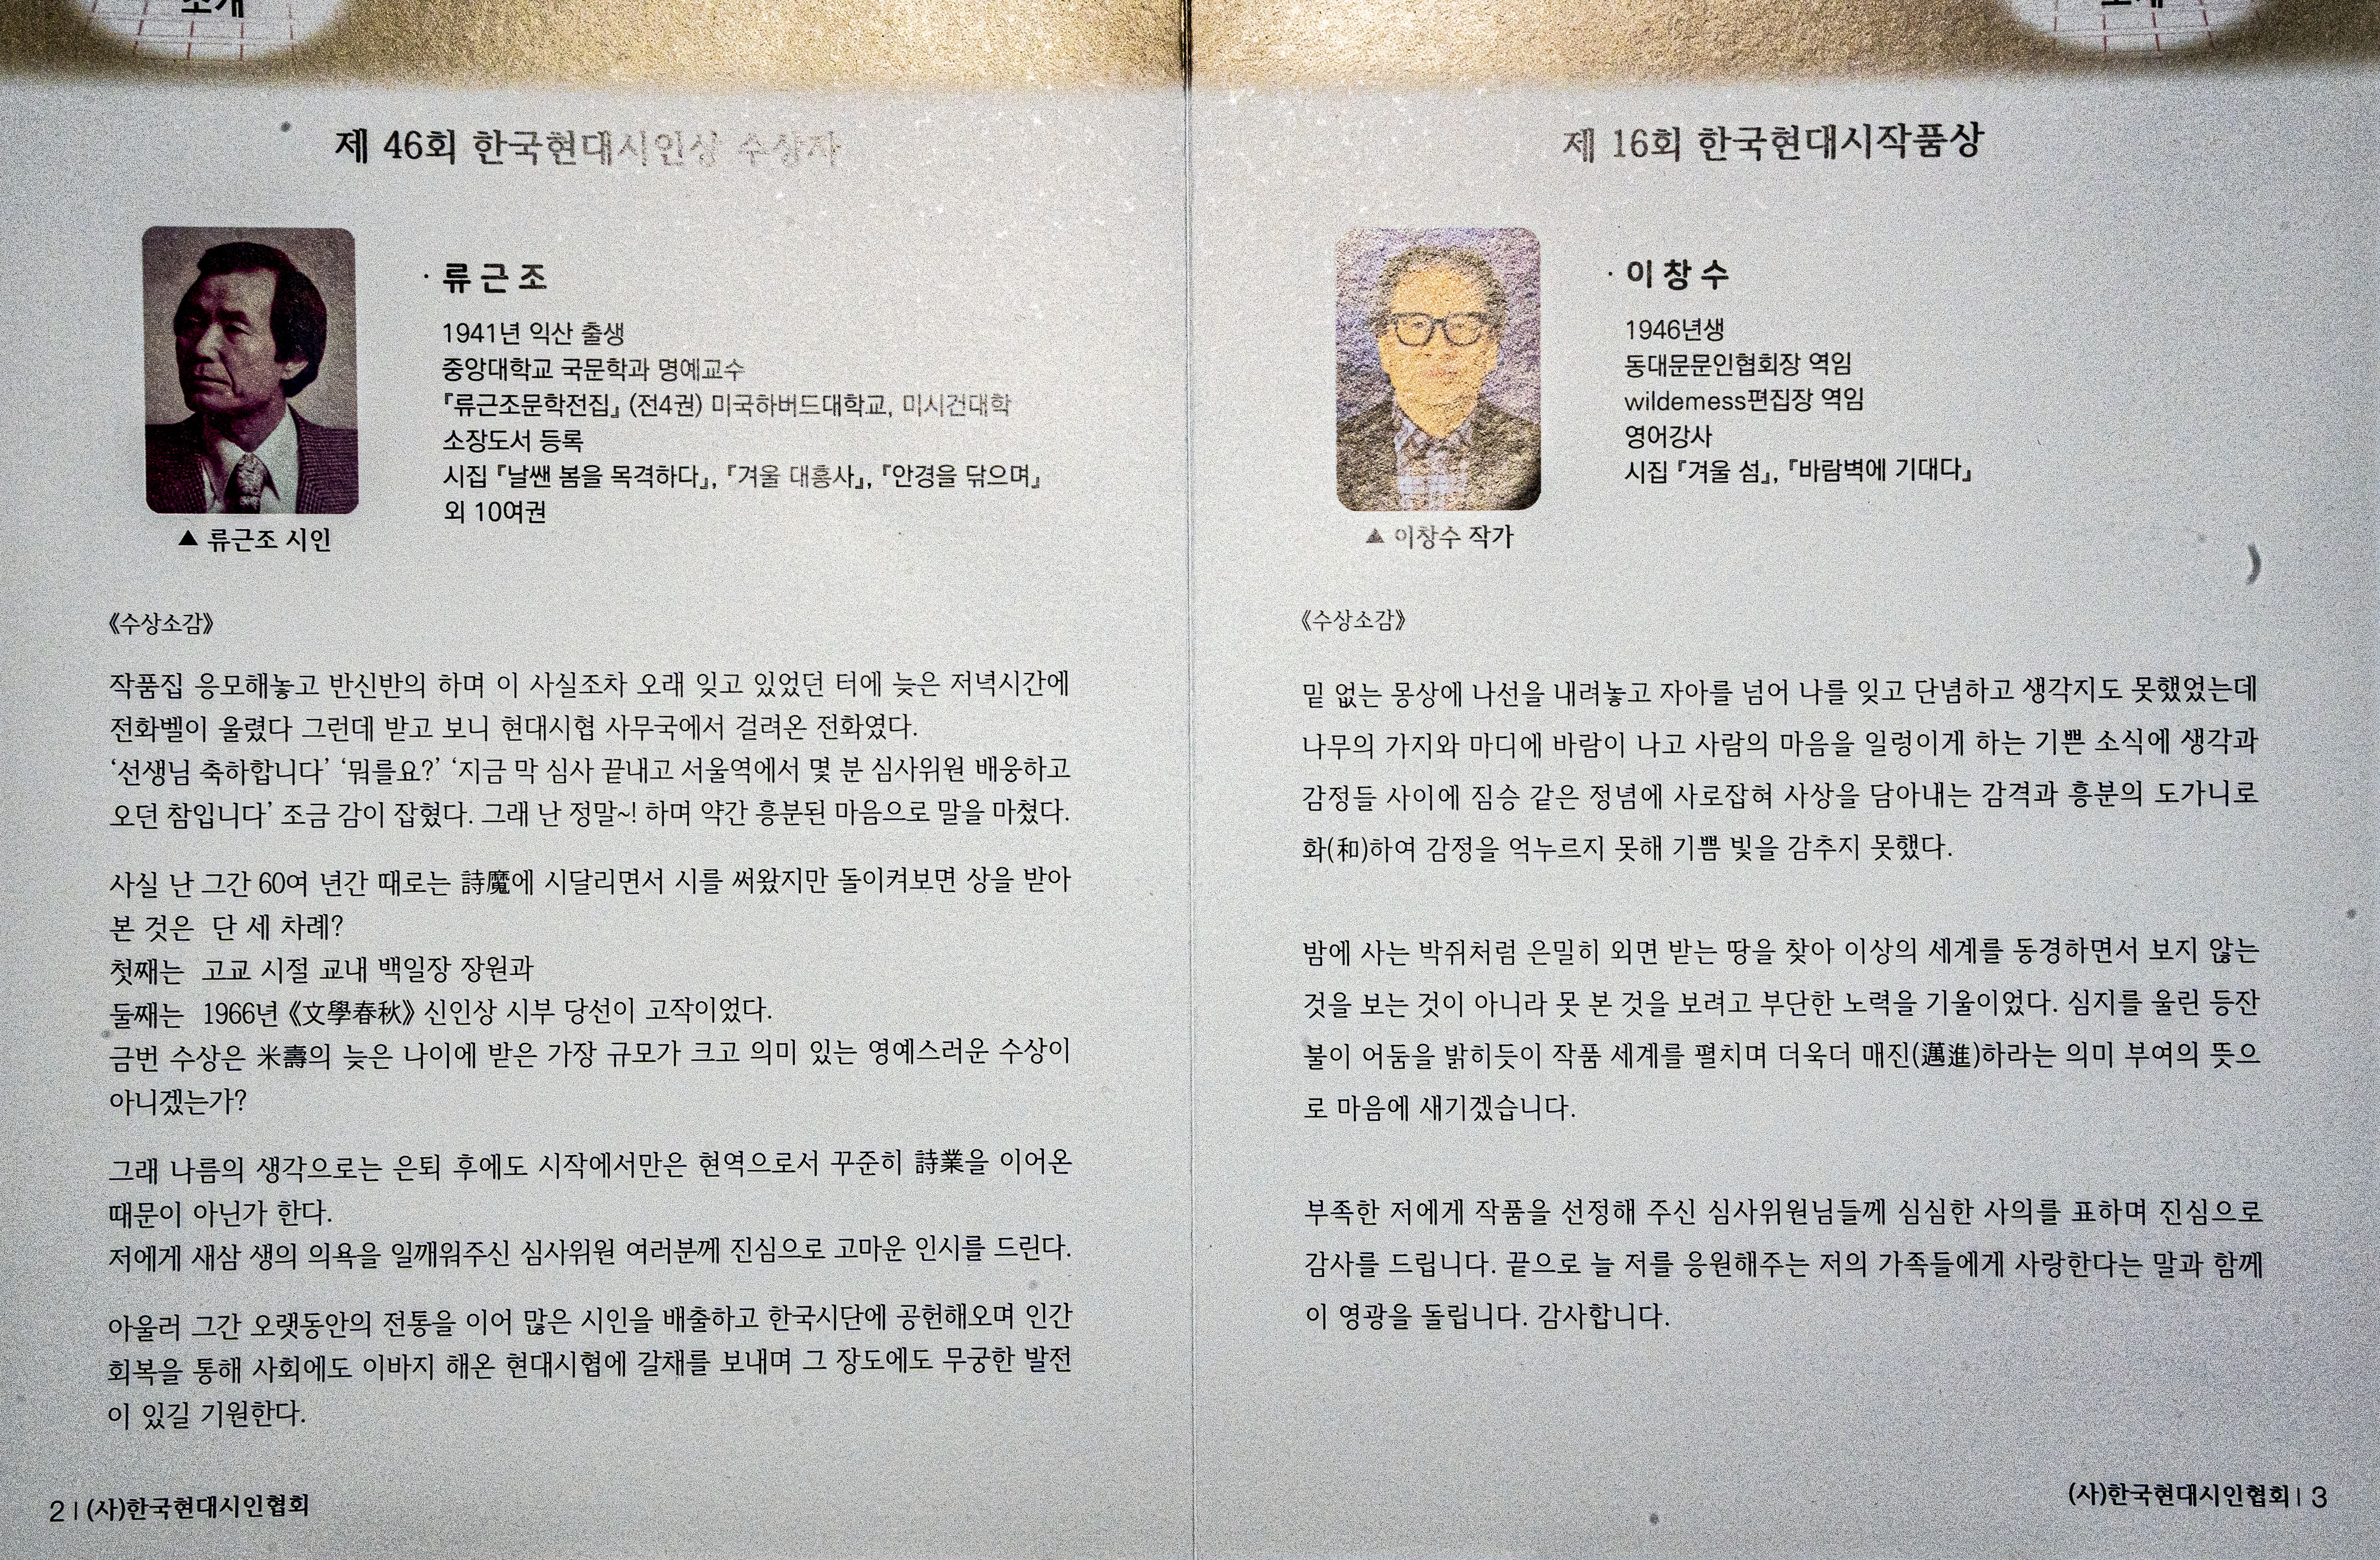 소개
제 46회 한국현대시인상 수상자
· 류 근 조
1941년 익산 출생
중앙대학교 국문학과 명예교수
『류근조문학전집』 (전4권) 미국하버드대학교, 미시건대학
소장도서 등록
시집 『날쌘 봄을 목격하다』, 『겨울 대흥사』, 『안경을 닦으며』
외 10여권
▲ 류근조 시인
《수상소감》
작품집 응모해놓고 반신반의 하며 이 사실조차 오래 잊고 있었던 터에 늦은 저녁시간에
전화벨이 울렸다 그런데 받고 보니 현대시협 사무국에서 걸려온 전화였다.
‘선생님 축하합니다’ ‘뭐를요?’ ‘지금 막 심사 끝내고 서울역에서 몇 분 심사위원 배웅하고
오던 참입니다’ 조금 감이 잡혔다. 그래 난 정말~! 하며 약간 흥분된 마음으로 말을 마쳤다.
사실 난 그간 60여 년간 때로는 詩魔에 시달리면서 시를 써왔지만 돌이켜보면 상을 받아
본 것은 단 세 차례?
첫째는 고교 시절 교내 백일장 장원과
둘째는 1966년 《文學春秋》 신인상 시부 당선이 고작이었다.
금번 수상은 米壽의 늦은 나이에 받은 가장 규모가 크고 의미 있는 영예스러운 수상이
아니겠는가?
그래 나름의 생각으로는 은퇴 후에도 시작에서만은 현역으로서 꾸준히 詩業을 이어온
때문이 아닌가 한다.
저에게 새삼 생의 의욕을 일깨워주신 심사위원 여러분께 진심으로 고마운 인시를 드린다.
아울러 그간 오랫동안의 전통을 이어 많은 시인을 배출하고 한국시단에 공헌해오며 인간
회복을 통해 사회에도 이바지 해온 현대시협에 갈채를 보내며 그 장도에도 무궁한 발전
이 있길 기원한다.
2 | (사)한국현대시인협회
소개
제 16회 한국현대시작품상
· 이 창 수
1946년생
동대문문인협회장 역임
wildemess편집장 역임
영어강사
시집 『겨울 섬』, 『바람벽에 기대다』
▲ 이창수 작가
《수상소감》
밑 없는 몽상에 나선을 내려놓고 자아를 넘어 나를 잊고 단념하고 생각지도 못했었는데
나무의 가지와 마디에 바람이 나고 사람의 마음을 일렁이게 하는 기쁜 소식에 생각과
감정들 사이에 짐승 같은 정념에 사로잡혀 사상을 담아내는 감격과 흥분의 도가니로
화(和)하여 감정을 억누르지 못해 기쁨 빛을 감추지 못했다.
밤에 사는 박쥐처럼 은밀히 외면 받는 땅을 찾아 이상의 세계를 동경하면서 보지 않는
것을 보는 것이 아니라 못 본 것을 보려고 부단한 노력을 기울이었다. 심지를 울린 등잔
불이 어둠을 밝히듯이 작품 세계를 펼치며 더욱더 매진(邁進)하라는 의미 부여의 뜻으
로 마음에 새기겠습니다.
부족한 저에게 작품을 선정해 주신 심사위원님들께 심심한 사의를 표하며 진심으로
감사를 드립니다. 끝으로 늘 저를 응원해주는 저의 가족들에게 사랑한다는 말과 함께
이 영광을 돌립니다. 감사합니다.
(사)한국현대시인협회 | 3